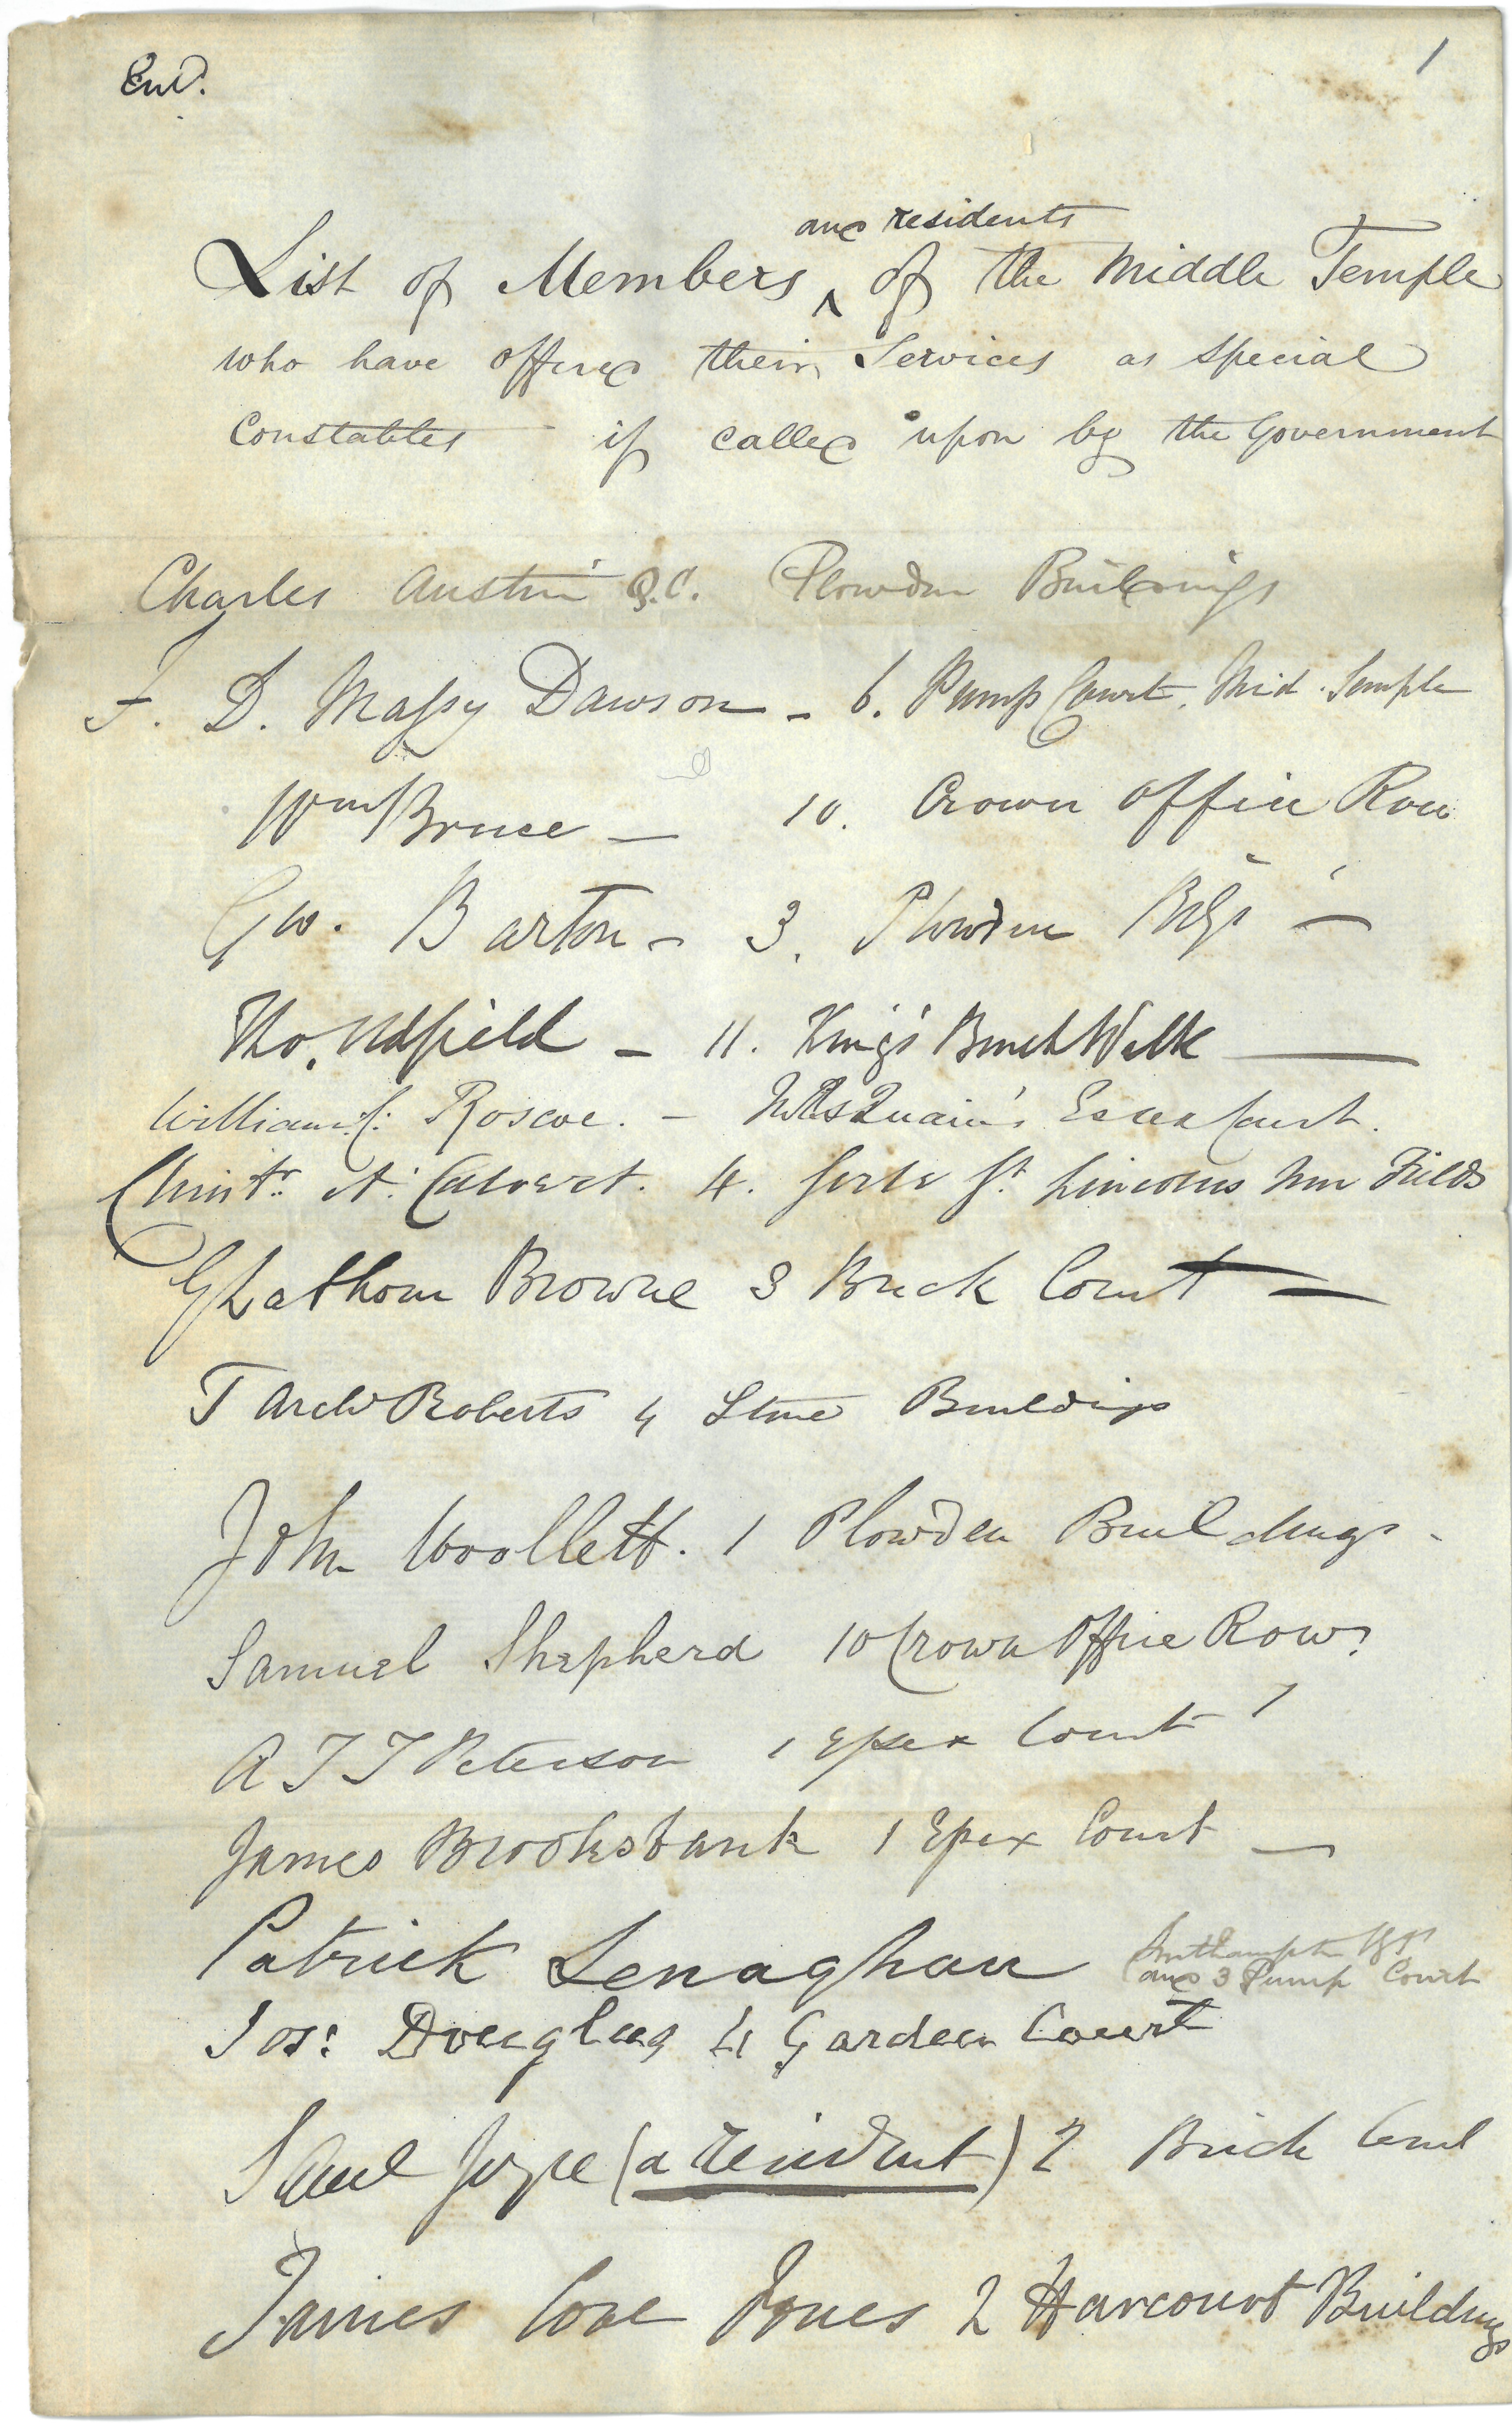 1
and residents
List of Members ^ of the Middle Temple
who have offered their Services as Special
Constables if called upon by the Government
Charles Austin Q.C. Plowden Buildings
F. D. Massy Dawson - 6. Pump Court. Mid. Temple
Wm Bruce - 10. Crown Office Row
G W. Barton - 3. Plowden Bdgs -
Tho. Udfield - 11. King's Bench Walk
William C. Roscoe. - Quain's Essex Court.
A. Calvert. 4. Serle St. Lincolns Inn Fields
G Lathom Browne 3 Brick Court -
T Archd Roberts 4 Stone Buildings
John Woollett. 1 Plowden Buildings -
Samuel Shepherd 10 Crown Office Row
A T T Peterson 1 Essex Court
James Brooksbank 1 Essex Court -
Patrick Lenaghan Southampton Bgs
and 3 Pump Court
Jos: Douglas 4 Garden Court
Saml Joyce (a resident) 2 Brick Court
James Cove Jones 2 Harcourt Buildings